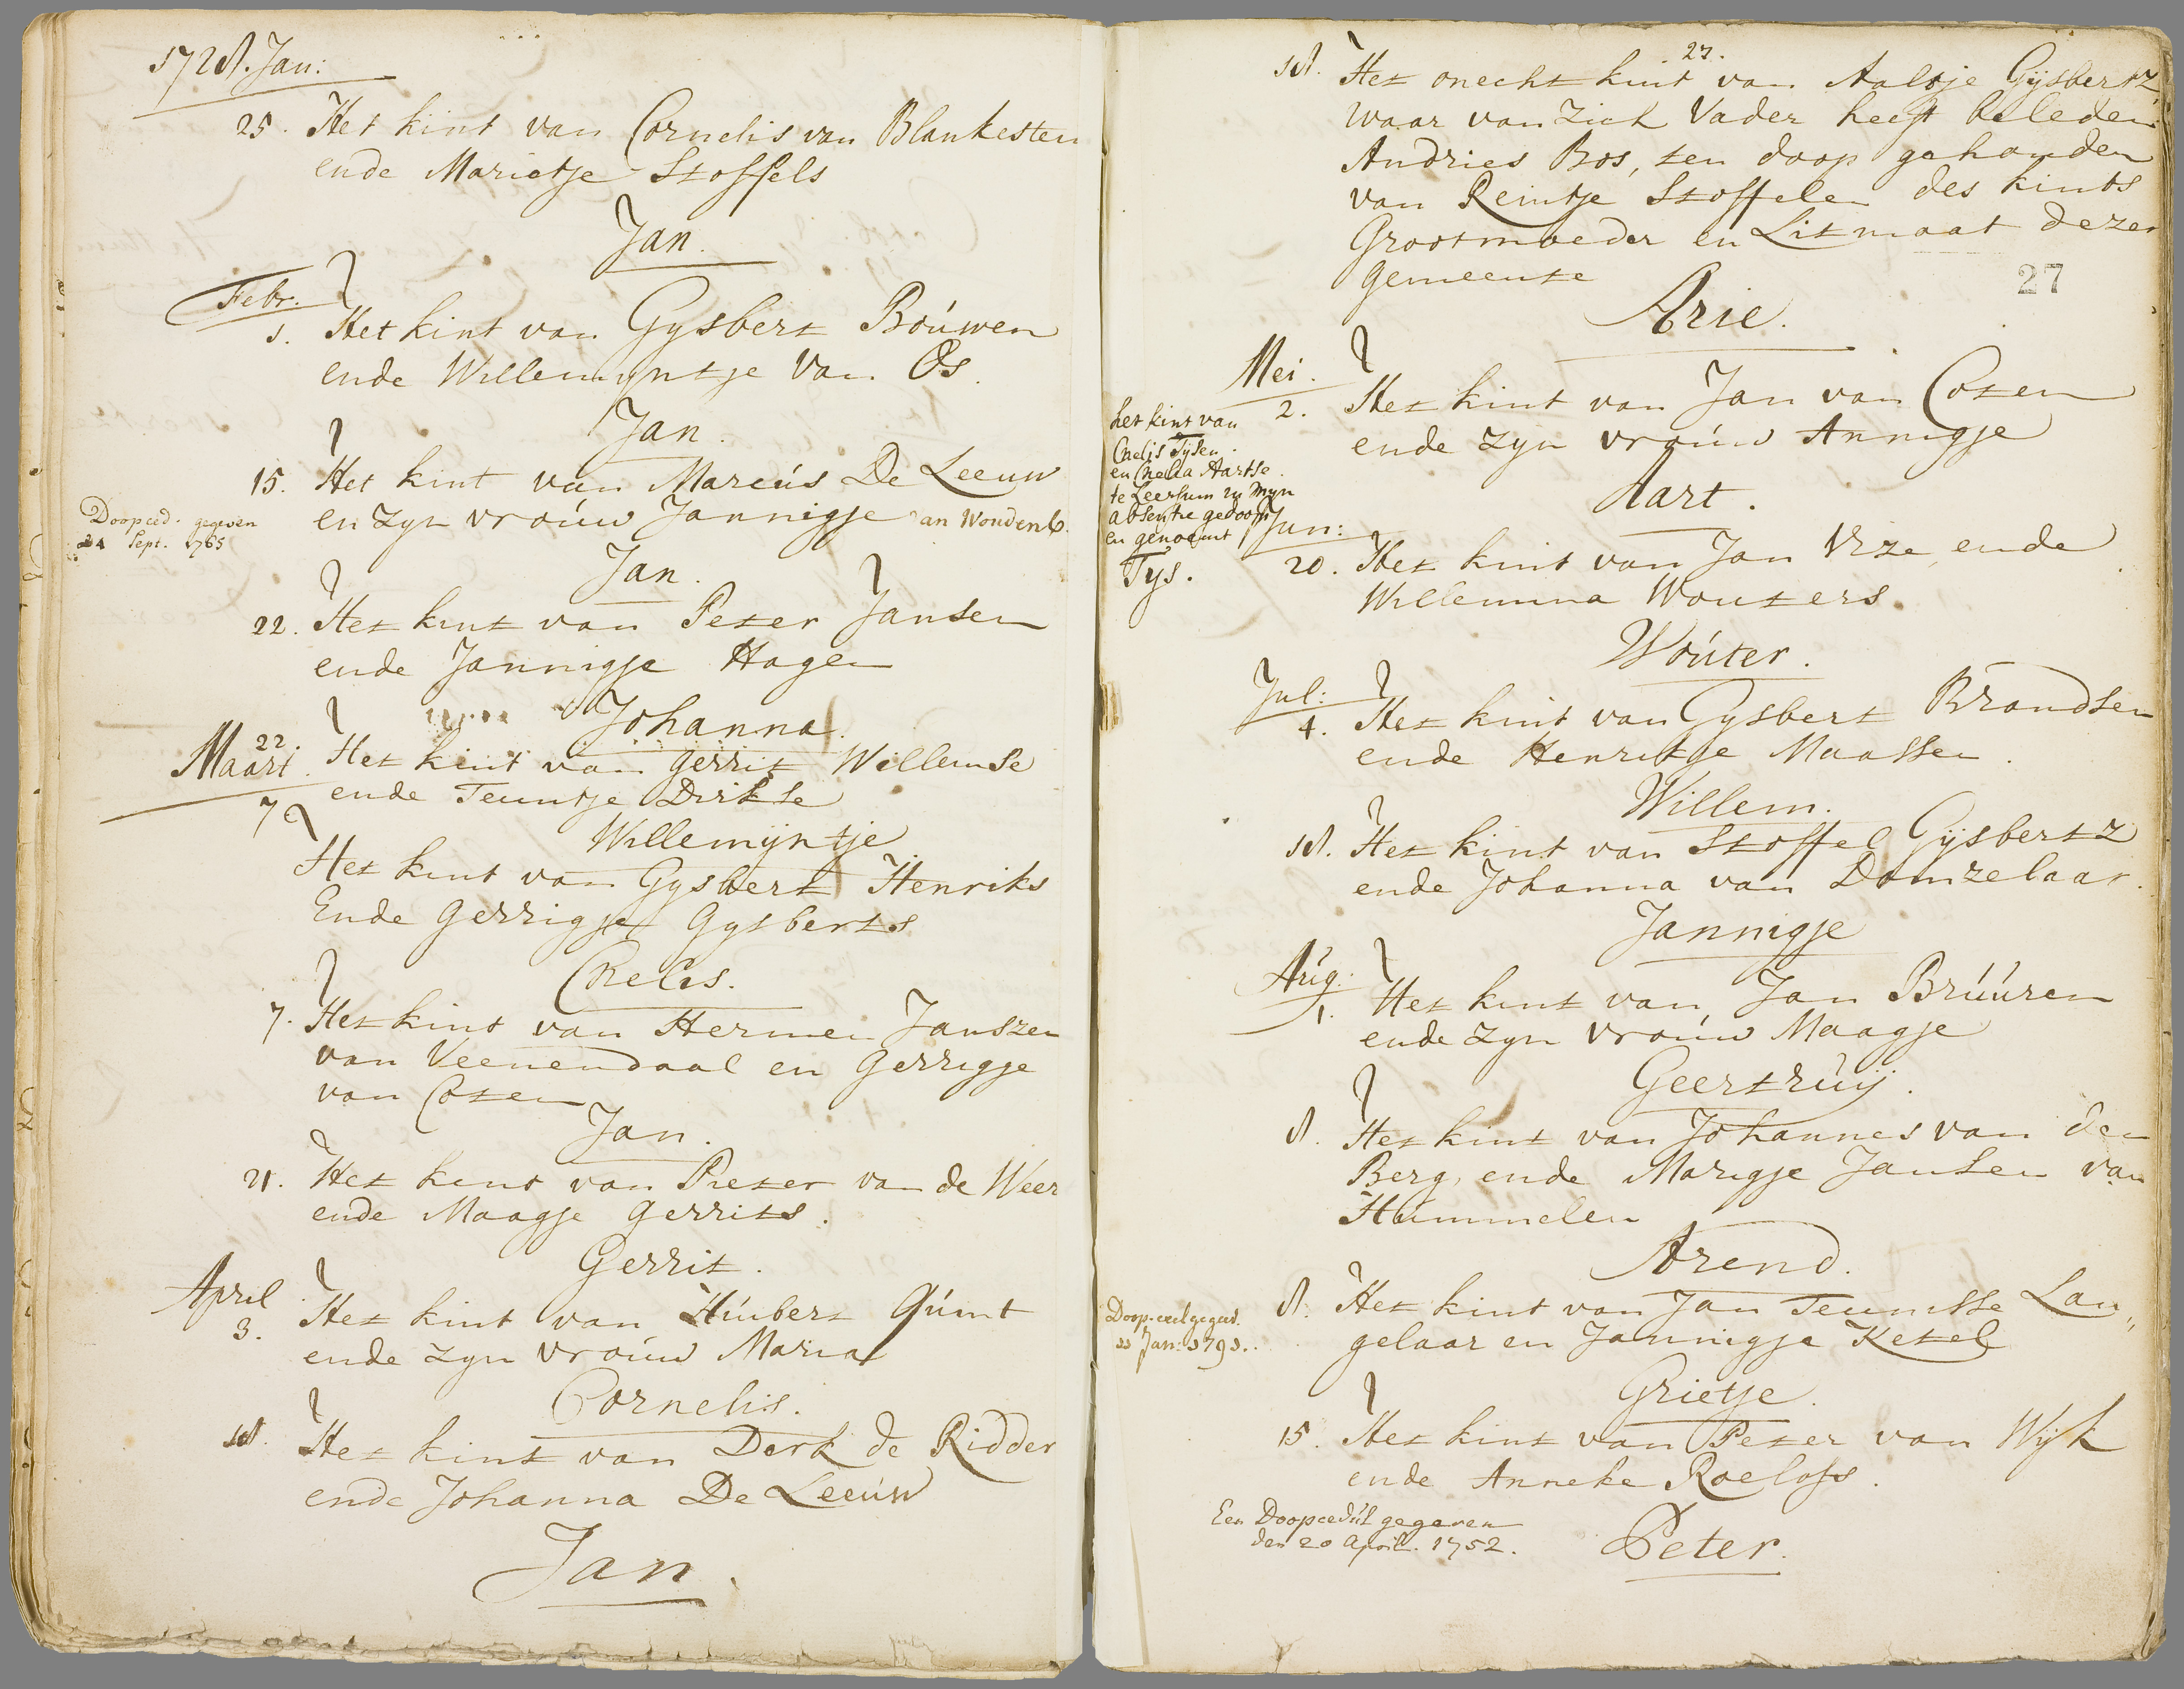 1728. Jan:
25. Het kint van Cornelis van Blankesten
ende Marietje Stoffels
Jan.
Febr.
1. Het kint van Gysbert Bóúwen
ende Willemyntje van Os.
Jan.
15. Het kint van Marcús De Leeuw
en zyn vroúw Jannigje an Woudenb.
Doopced. gegeven
24 Sept. 1765
Jan.
22. Het kint van Peter Jansen
ende Jannigje Hagen
Johanna.
22. Het kint van Gerrit Willemse
Maart.
ende Teuntje Dirkse
Willemijntje.
7 Het kint van Gysbert Henriks
Ende Gerrigje Gysberts
Cnelis.
7. Het kint van Hermen Janszen
van Veenendaal en Gerrigje
van Coten
Jan.
21. Het kint van Pieter van de Weer
ende Maagje Gerrits.
Gerrit.
April
3. Het kint van Húibert Qúint
ende zyn vroúw Maria
Cornelis.
18. Het kint van Derk de Ridder
ende Johanna De Leeúw
Jan.
27.
18. Het onecht kint van Aaltje Gijsbertz,
waar van zich Vader heeft beleden
Andries Bos, ten doop gehouden
van Reintje Stoffelen des kints
Grootmoeder en Litmaat dezer
Gemeente
27
Arie.
Mei.
2. Het kint van Jan van Coten
ende zyn vroúw Annigje
Aart.
het kint van
Cnelis Tysen
en Cnelia Aartse.
te Leersum in myn
absentie gedoopt
en genoemt
Tys.
Jun:
20. Het kint van Jan Vize, ende
Willemina Wouters.
Wóúter.
Jul:
4. Het kint van Gysbert Brandsen
ende Henrikje Maassen.
Willem.
18. Het kint van Stoffel Gijsbertz
ende Johanna van Domzelaar.
Jannigje
Aúg.
1. Het kint van Jan Brúúren
ende zyn vroúw Maagje
Geertrúij.
8. Het kint van Johannes van den
Berg, ende Marigje Jansen van
Hummelen
Arend.
8. Het kint van Jan Teunisse Lan„
gelaar en Jannigje Ketel
Doop-ceel gegeev.
11 Jan: 1791.
Grietje.
15. Het kint van Peter van Wijk
ende Anneke Roelofs.
Een Doopcedúl gegeven
den 20 April. 1752.
Peter.